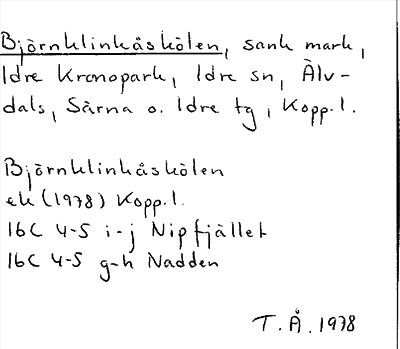 Björnklinkåskölen, sank mark,
Idre Kronopark, Idre sn, Älv-
dals, Särna o. Idre tg, Kopp. l.
Björnklinkåskölen
ek (1978) Kopp. l.
16C 4-5 i-j Nipfjället
16C 4-5 g-h Nadden
T. Å. 1978